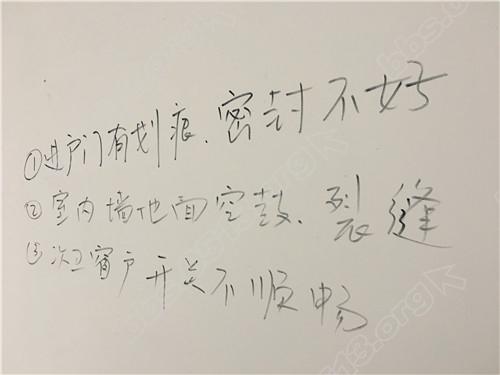 ①进户门有划痕、密封不好
②室内墙地面空鼓、裂缝
③次卫窗户开关不顺畅